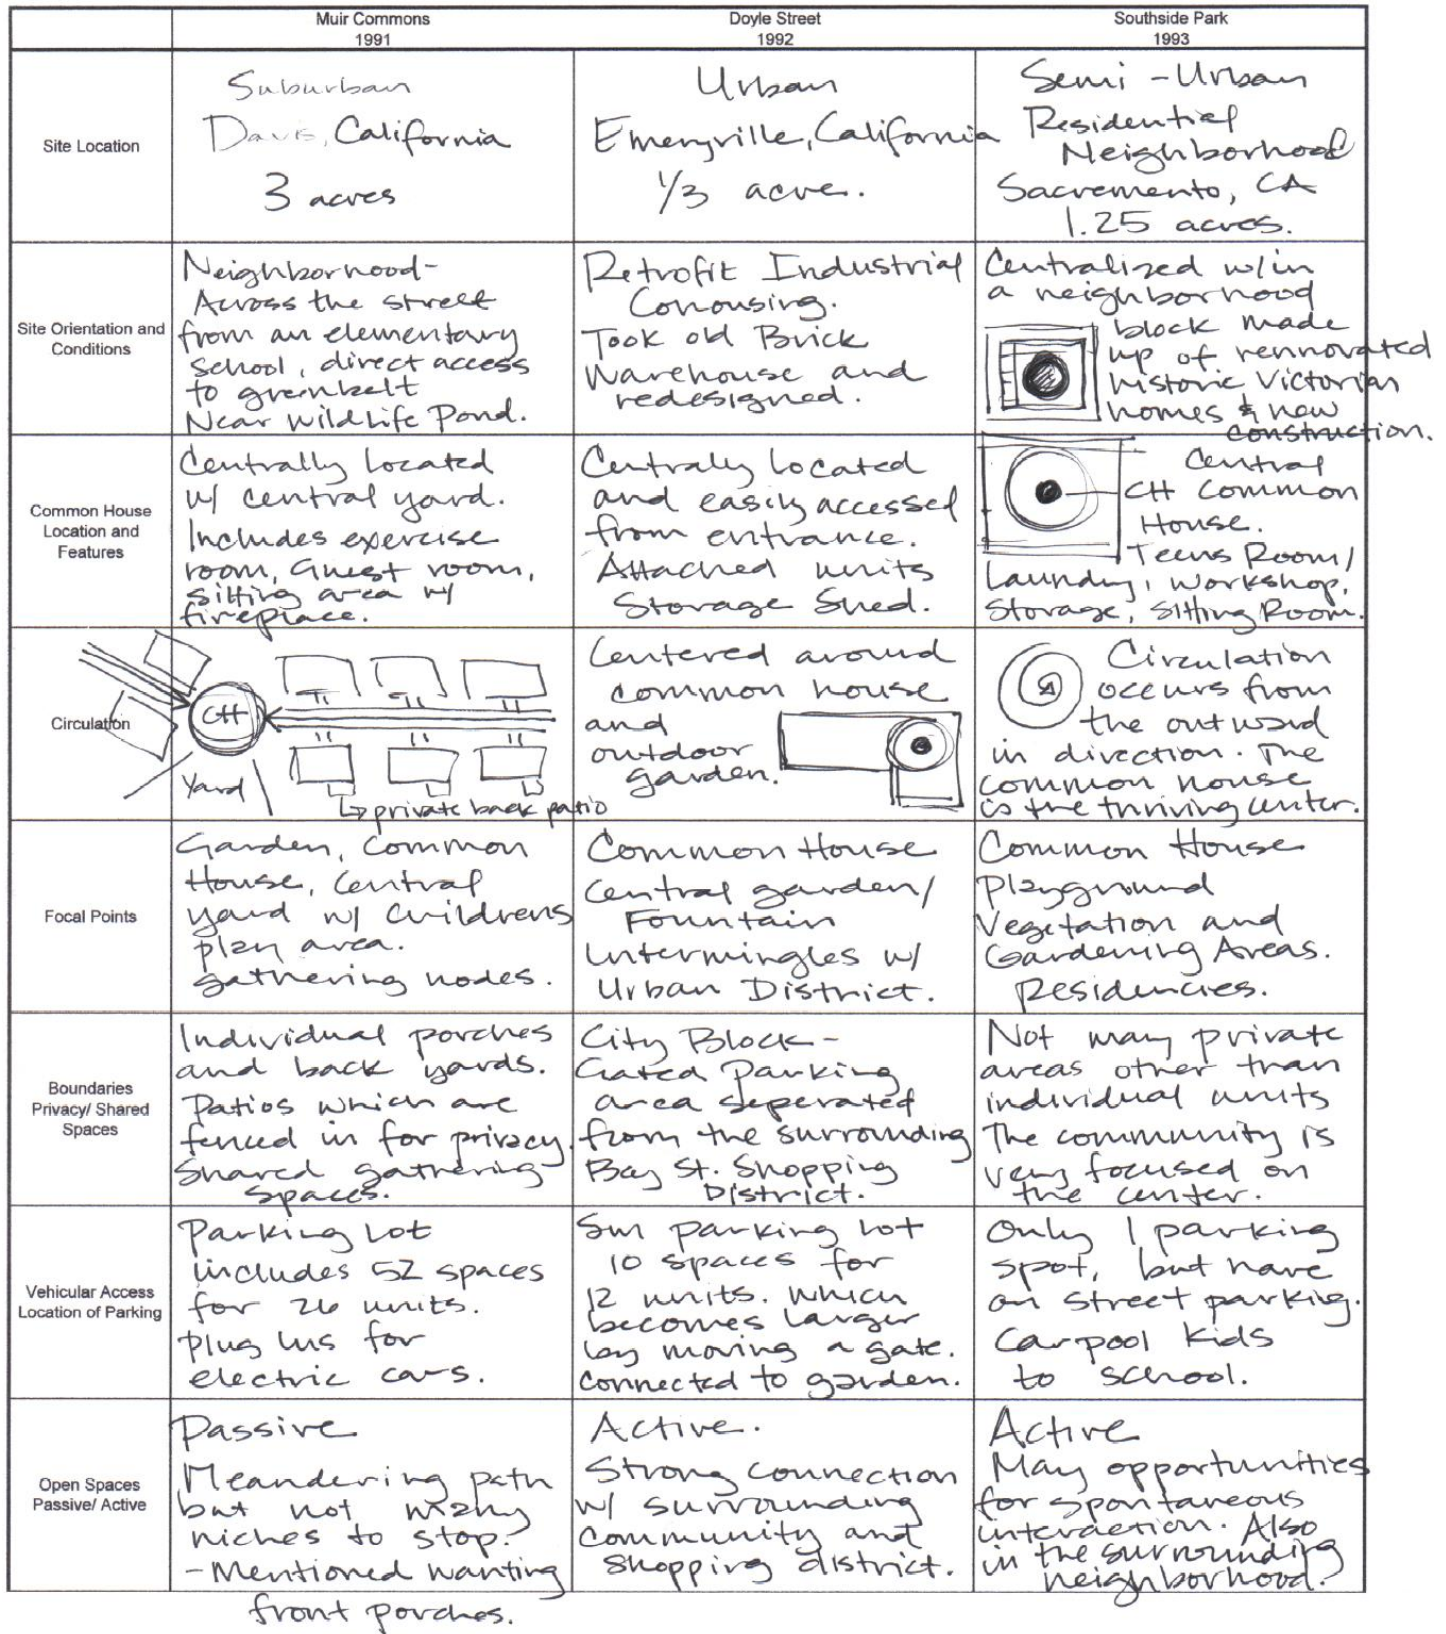 Muir Commons
1991
Doyle Street
1992
Southside Park
1993
Site Location
Suburban
Davis, California
3 acres
Urban
Emeryville, California
1/3 acre.
Semi-Urban
Residential
Neighborhood
Sacramento, CA
1.25 acres.
Site Orientation and
Conditions
Neighborhood-
Across the street
from an elementary
school, direct access
to greenbelt
Near Wildlife Pond.
Retrofit Industrial
Cohousing.
Took old Brick
Warehouse and
redesigned.
Centralized w/in
a neighborhood
block made
up of rennovated
historic Victorian
homes & new
construction.
Common House
Location and
Features
Centrally located
w/ central yard.
Includes exercise
room, Guest room,
sitting area w/
fireplace.
Centrally located
and easily accessed
from entrance.
Attached units
Storage Shed.
Central
CH Common
House.
Teens Room/
Laundry, Workshop,
Storage, Sitting Room.
Circulation
CH
Yard
private back patio
Centered around
common house
and
outdoor
garden.
Circulation
occurs from
the outward
in direction. The
common house
is the thriving center.
Focal Points
Garden, Common
House, Central
yard w/ Childrens
play area.
gathering nodes.
Common House
Central garden/
Fountain
Intermingles w/
Urban District.
Common House
Playground
Vegetation and
Gardening Areas.
Residencies.
Boundaries
Privacy/ Shared
Spaces
Individual porches
and back yards.
Patios which are
fenced in for privacy.
Shared gathering
spaces.
City Block-
Gated Parking
area seperated
from the surrounding
Bay St. Shopping
District.
Not many private
areas other than
individual units
The community is
very focused on
the center.
Vehicular Access
Location of Parking
Parking lot
includes 52 spaces
for 26 units.
plug ins for
electric cars.
Sm parking lot
10 spaces for
12 units. which
becomes larger
by moving a gate.
connected to garden.
Only 1 parking
spot, but have
on street parking.
Carpool kids
to school.
Open Spaces
Passive/ Active
Passive
Meandering path
but not many
niches to stop.
-Mentioned wanting
front porches.
Active.
Strong connection
w/ surrounding
community and
shopping district.
Active
May opportunities
for spontaneous
interaction. Also
in the surrounding
neighborhood.